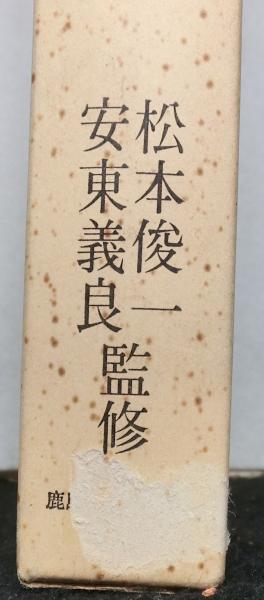 松本俊一
安東義良
監修
鹿